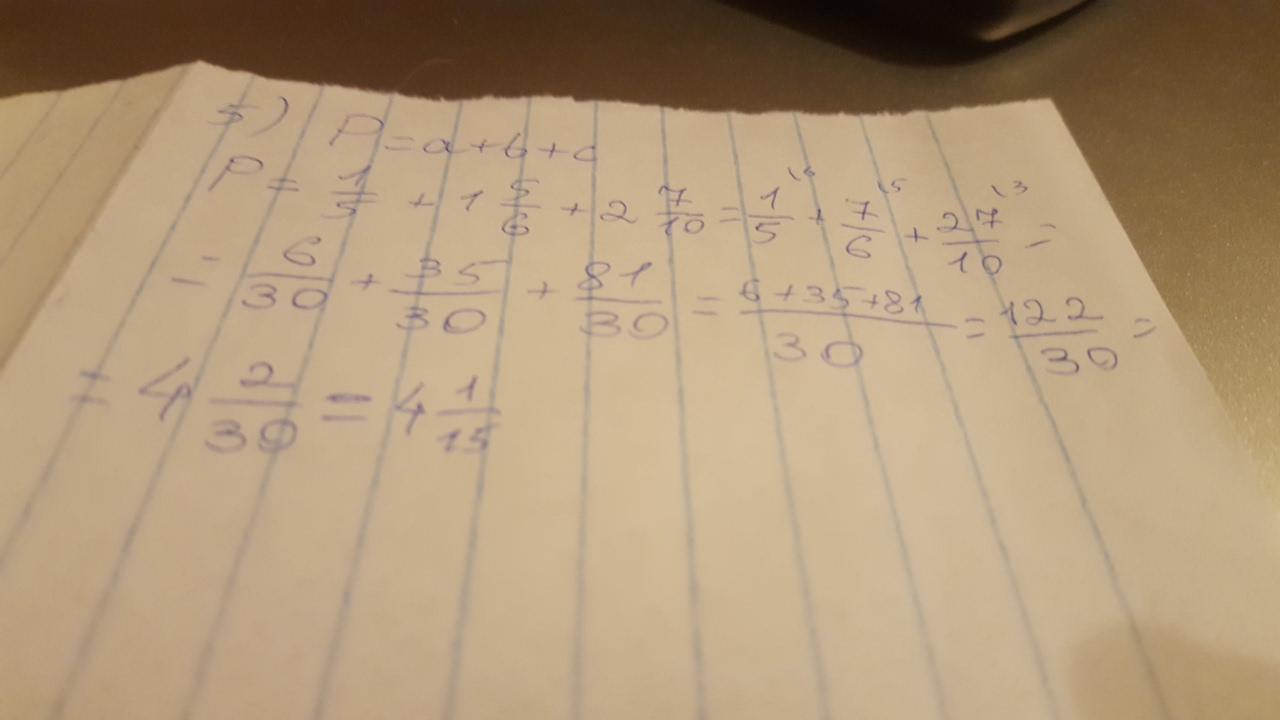 5) P = a + b + c
P = 1/5 + 1 5/6 + 2 7/10 = 1/5 \6 + 7/6 \5 + 27/10 \3 =
= 6/30 + 35/30 + 81/30 = 6+35+81/30 = 122/30 =
= 4 2/30 = 4 1/15